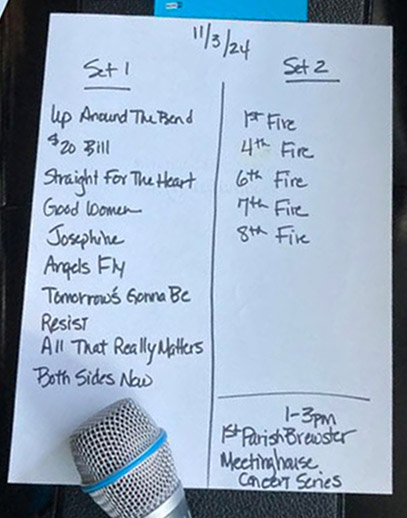 11/3/24
Set 1
Up Around The Bend
$20 Bill
Straight For The Heart
Good Women
Josephine
Angels Fly
Tomorrow's Gonna Be
Resist
All That Really Matters
Both Sides Now
Set 2
1st Fire
4th Fire
6th Fire
7th Fire
8th Fire
1-3pm
1st Parish Brewster
Meetinghouse
Concert Series